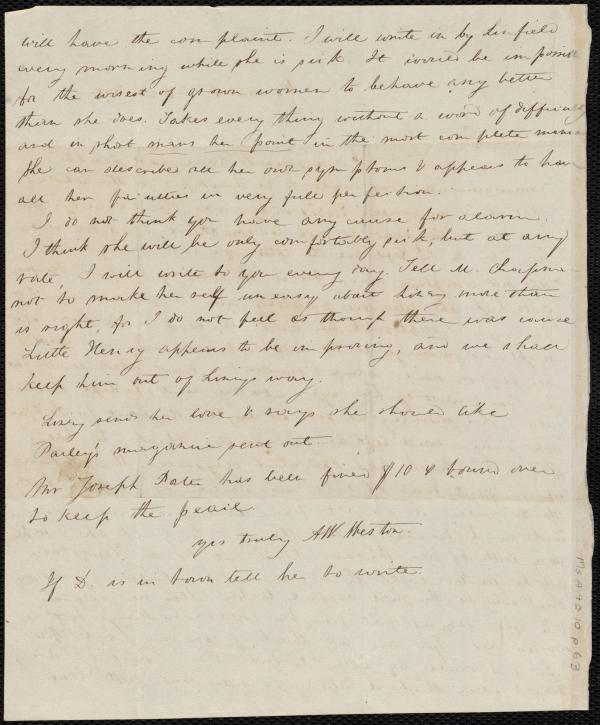 will have the complaint. I will write in by Linfield
every morning while she is sick. It would be impossi
for the wisest of grown women to behave any better
than she does. Takes every thing without a word of difficulty
and in short mans her point in the most complete mann
She can describe all her own symptoms & appears to have
all her faculties in very full perfection.
I do not think you have any cause for alarm.
I think she will be only comfortably sick, but at any
rate, I will write to you every day. Tell M. Chapman
not to make her self uneasy about Lizzy more than
is right, for I do not feel as though there was cause
Little Henry appears to be improving, and we shall
keep him out of Lizzys way.
Lizzy sends her love & says she should like
Parley's magazine sent out.
Mr Joseph Bates has been fined $10 & bound over
to keep the peace.
yrs truly AW. Weston.
If D. is in town tell her to write.
Ms A.9.2.10 p 63